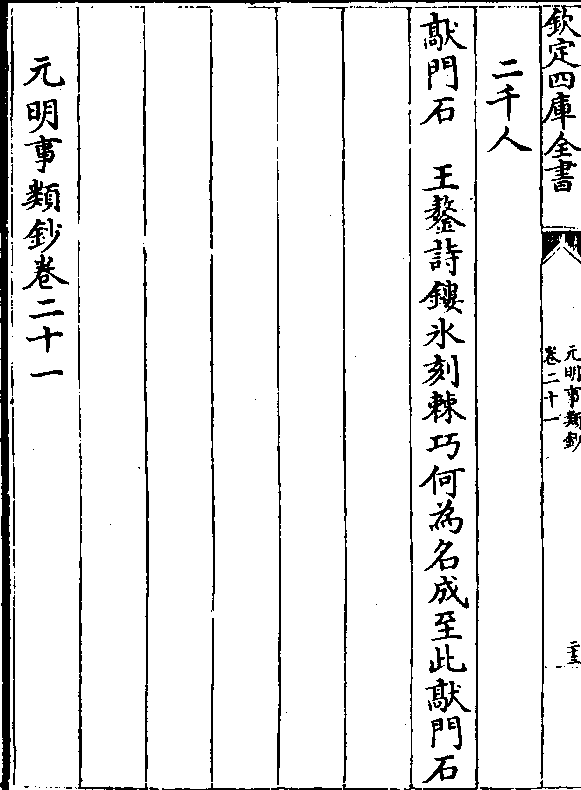 欽定四庫全書
元明事類鈔
卷二十一
二十三
二千人
敲門石　王鏊詩鏤氷刻棘巧何為名成至此敲門石
元明事類鈔卷二十一